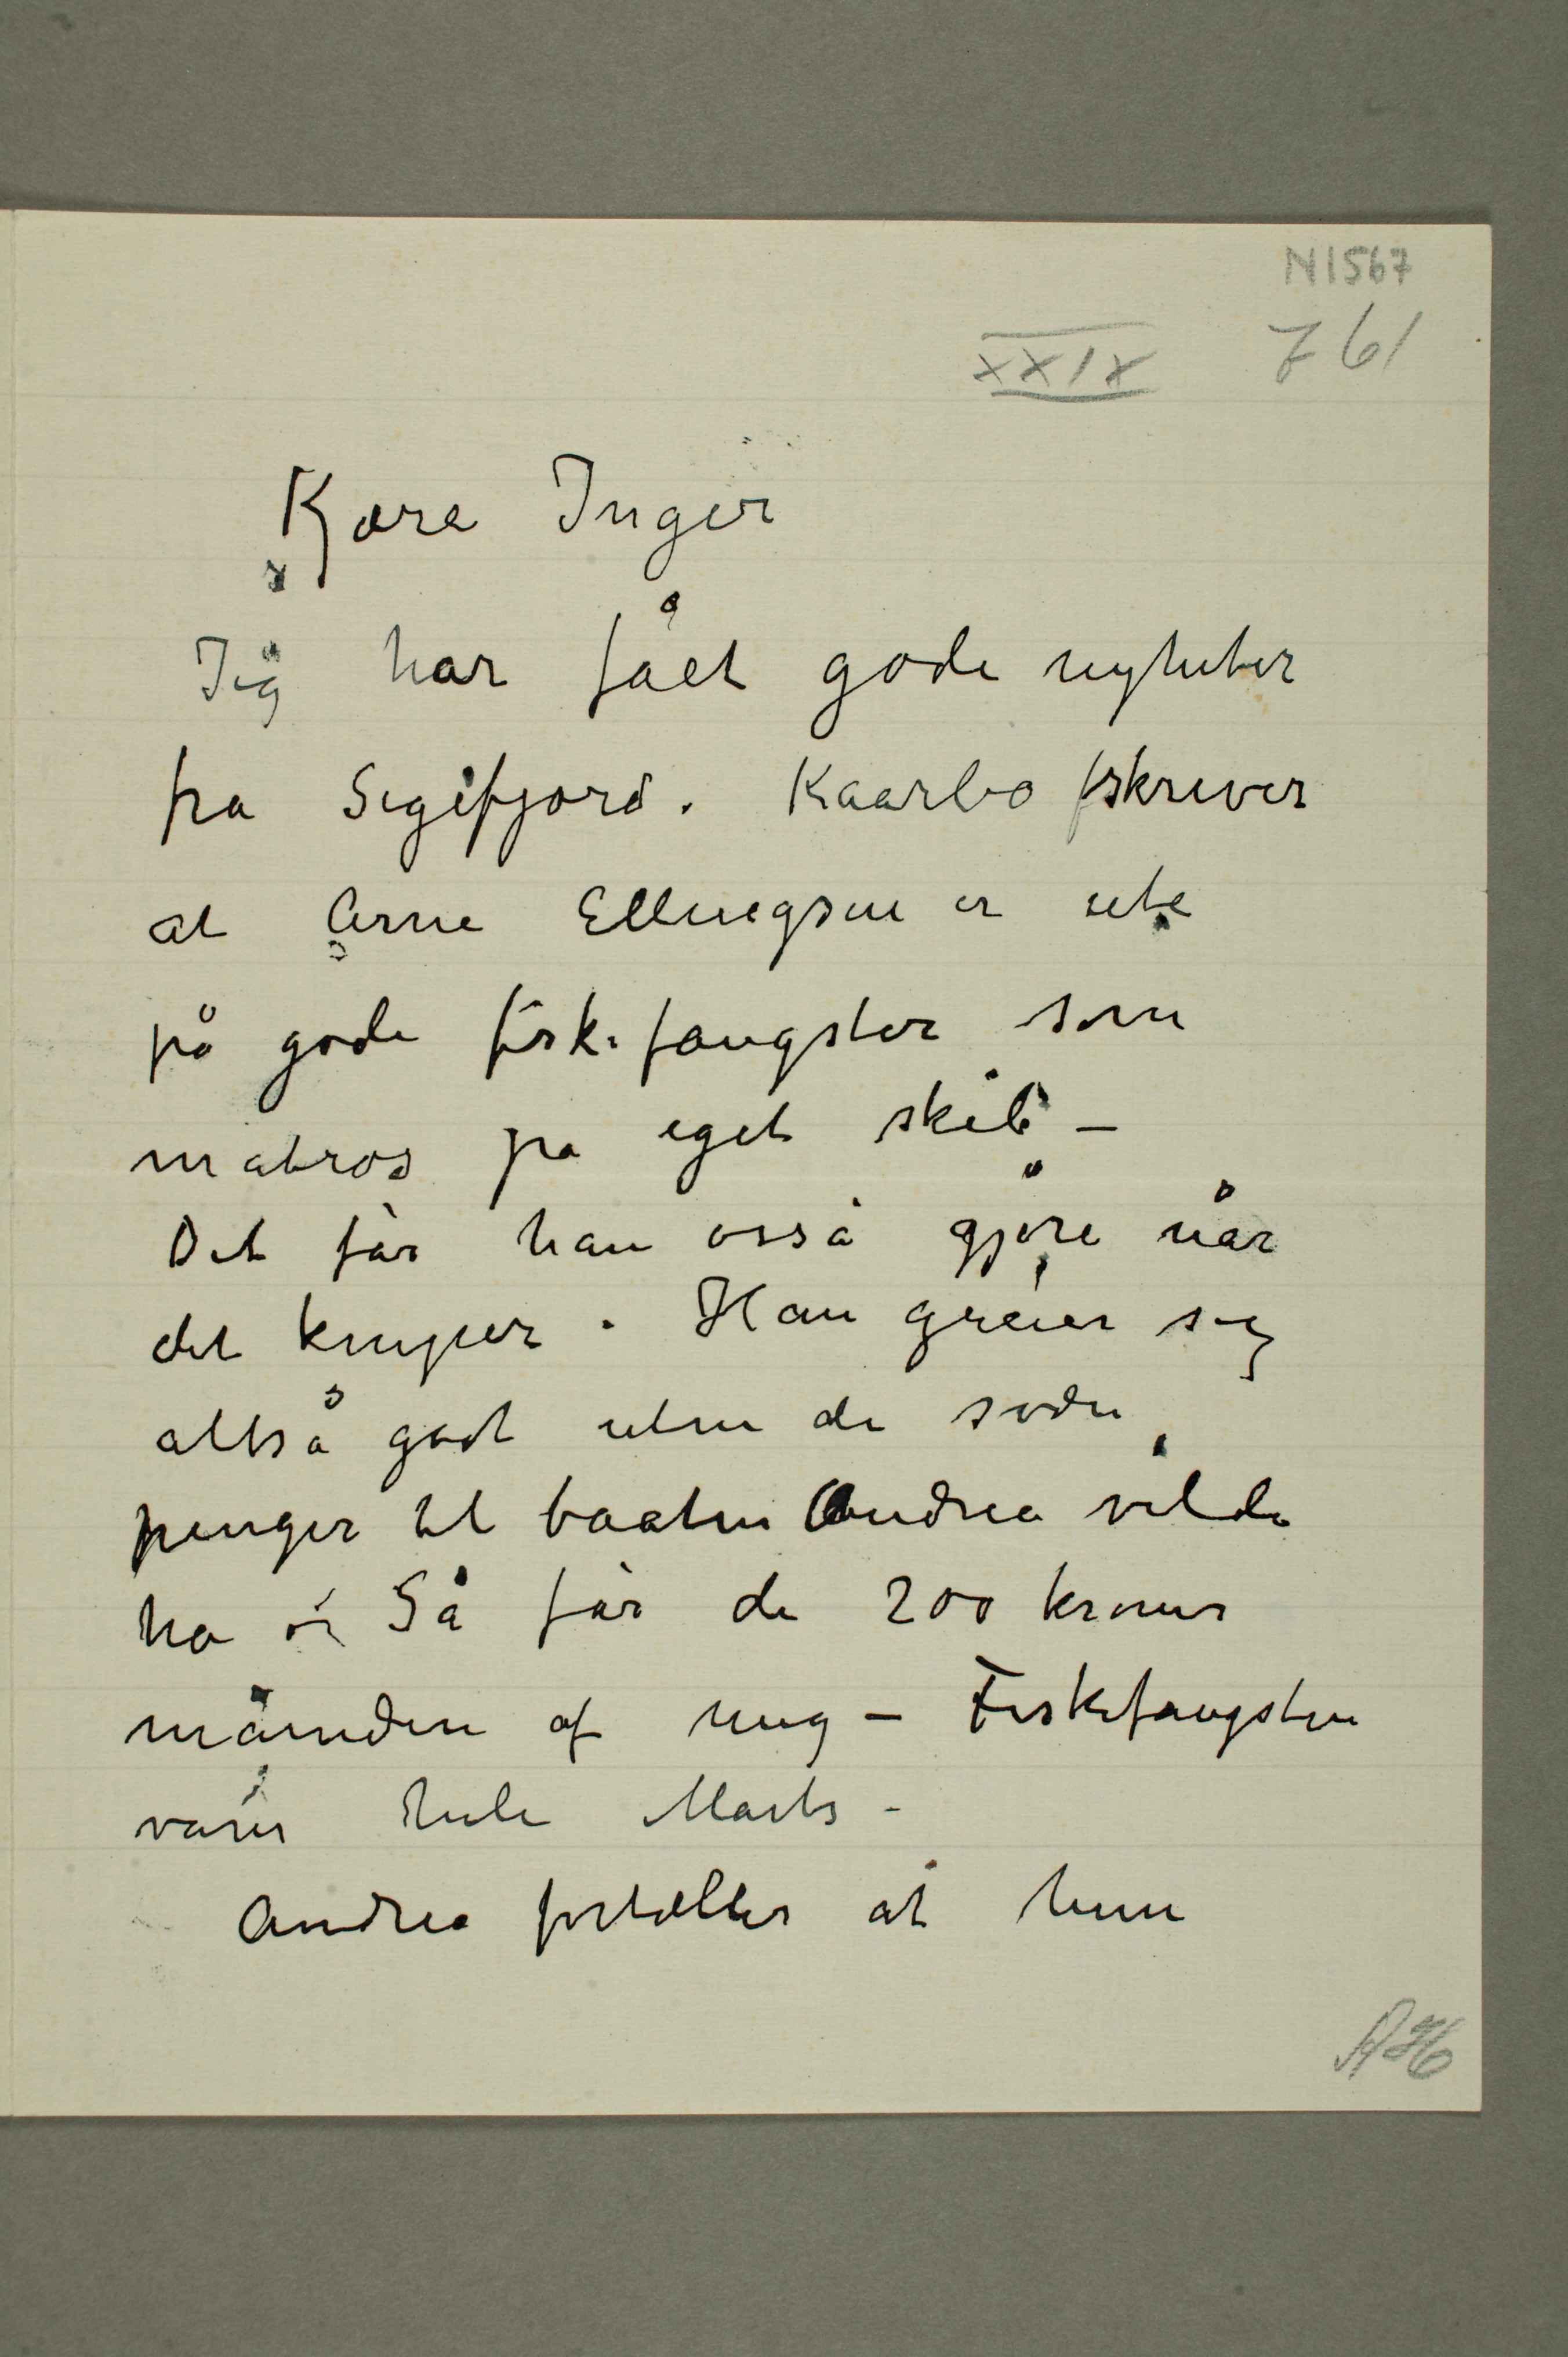 N 1567
XXIX 761
Kjære Inger
Jeg har fået gode nyheter
fra Sigerfjord. Kaarbø skriver
at Arne Ellingsen er ute
på gode fiskefangster som
matros på eget skib –
Det får han osså gjøre når
det kniper. Han greier sig
altså godt uten de
penger til baaten Andrea vilde
ha Så får de 200 kroner
måneden af mig – Fiskefangsten
varer hele Marts –
Andrea fortæller at hun